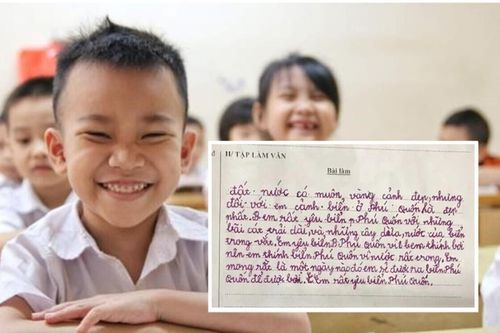 II/ TẬP LÀM VĂN
Bài làm
đất nước có muôn vàng cảnh đẹp, nhưng
đối với em cảnh biển ở Phú Quốc là đẹp
nhất. Em rất yêu biển Phú Quốc với những
bãi cát trải dài, và những cây dừa, nước của biển
trong vắt. Em yêu biển Phú Quốc vì em thích bơi
nên em thích biển Phú Quốc vì nước rất trong. Em
mong rất là một ngày nào đó em sẽ được ra biển Phú
Quốc để được bơi. Em rất yêu biển Phú Quốc.